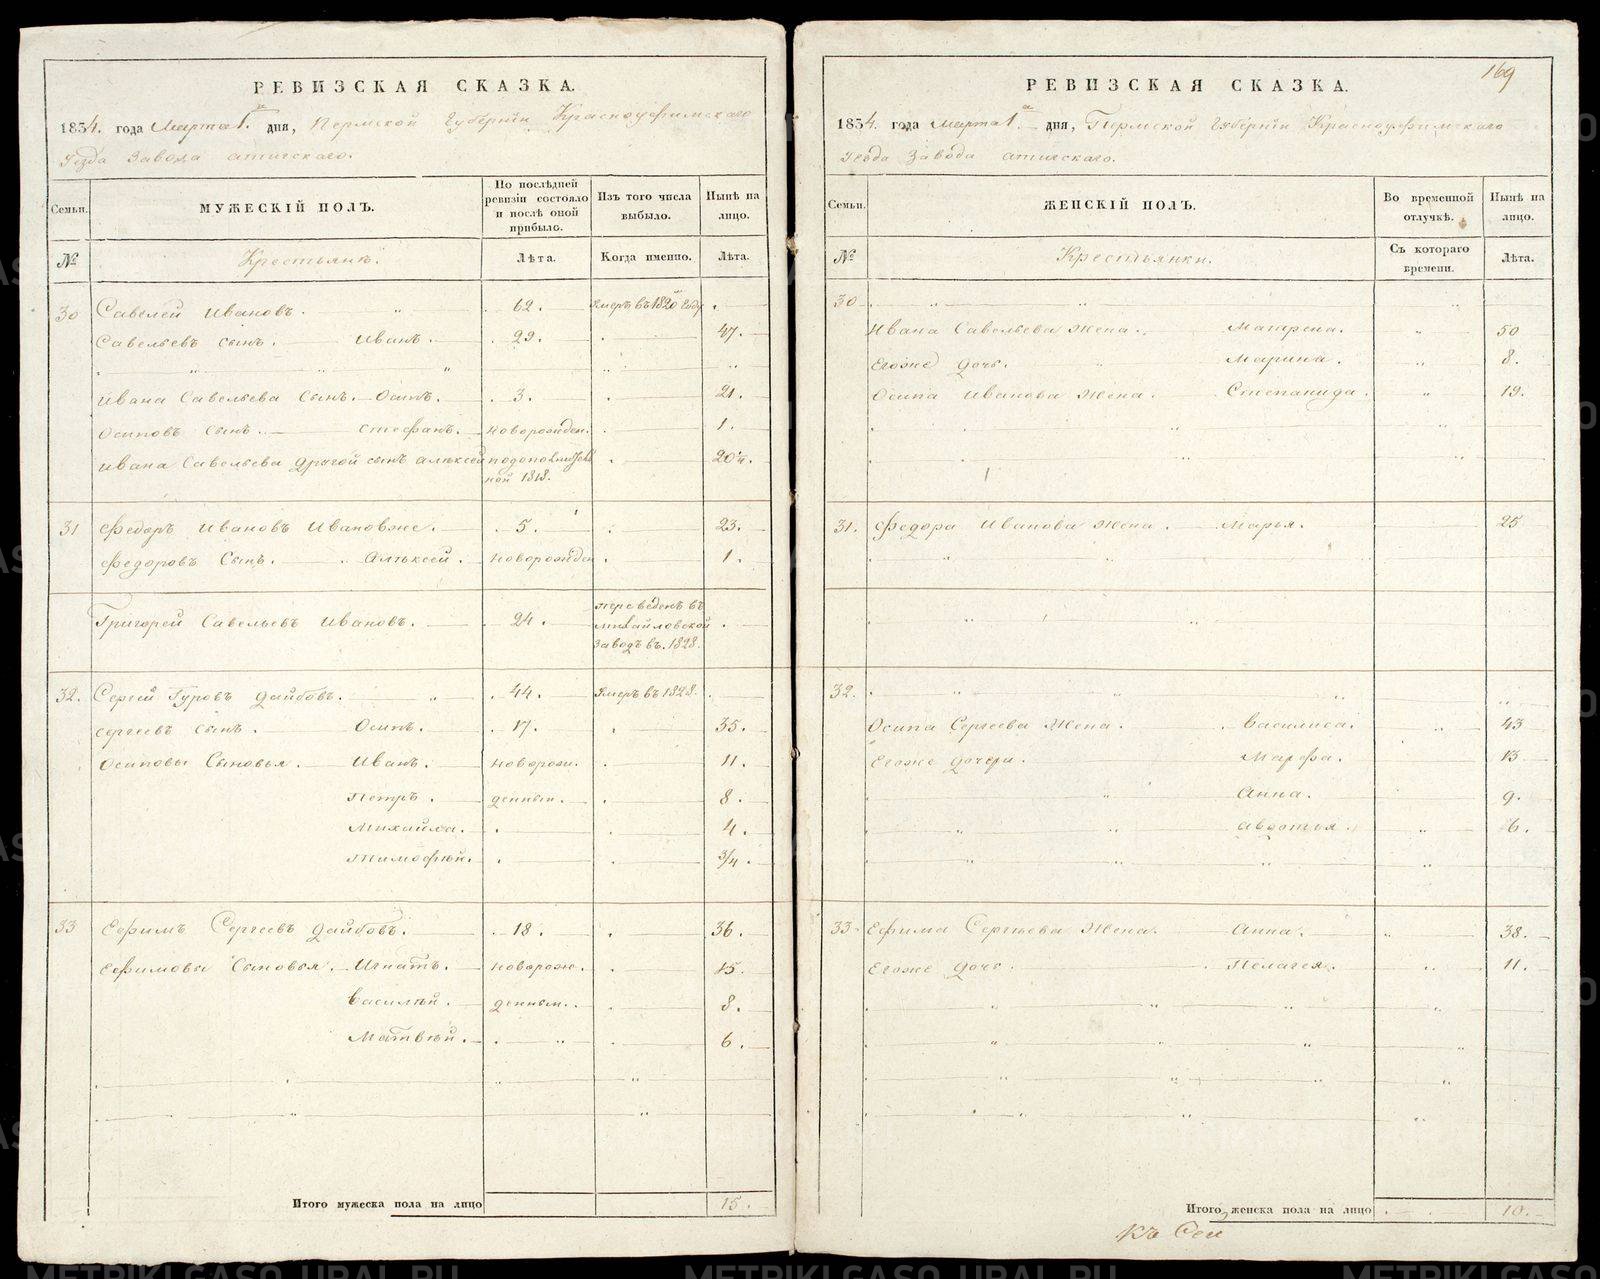 РЕВИЗСКАЯ СКАЗКА.
1834. года Марта 1го дня, Пермской Губернiи Красноуфимскаго
Уезда Завода Атигскаго.
Семьи.
МУЖЕСКІЙ ПОЛЪ.
По послѣдней ревизіи состояло и послѣ оной прибыло.
Изъ того числа выбыло.
Нынѣ на лицо.
№
Крестьянъ.
Лѣта.
Когда именно.
Лѣта.
30 Савелей Ивановъ. 62. Умеръ въ 1820 году
Савельевъ сынъ. Иванъ. 29. 47.
Ивана Савельева Сынъ. Осипъ. 3. 21.
Осиповъ Сынъ. Стефанъ. Новорожден. 1.
Ивана Савельева другой сынъ Алексей
ной 1818. 20¼.
31 Федоръ Ивановъ Ивановже. 5. 23.
Федоровъ Сынъ. Алѣксей. Новорожден 1.
Григорей Савельевъ Ивановъ. 24. Переведенъ въ
Михайловской
Заводъ въ. 1828.
32. Сергей Гуровъ Дайбовъ. 44. Умеръ въ 1828.
Сергеевъ Сынъ. Осипъ. 17. 35.
Осиповы Сыновья. Иванъ. Новорож. 11.
Петръ. денныи. 8.
Михайла. 4.
Тимофѣй. 3/4.
33 Ефимъ Сергеевъ Дайбовъ. 18. 36.
Ефимовы Сыновья. Игнатъ. Новорож. 15.
Василѣй. денныи. 8.
Матвѣй. 6.
Итого мужеска пола на лицо 15.
169
РЕВИЗСКАЯ СКАЗКА.
1834. года Марта 1го дня, Пермской Губернiи Красноуфимскаго
Уезда Завода Атигскаго.
Семьи.
ЖЕНСКІЙ ПОЛЪ.
Во временной отлучкѣ.
Нынѣ на лицо.
№
Крестьянки.
Съ котораго времени.
Лѣта.
30
Ивана Савельева Жена. Макрена. 50
Егоже Дочь. Марина. 8.
Осипа Иванова Жена. Степанида. 19.
31. Федора Иванова Жена. Марья. 25
32.
Осипа Сергеева Жена. Василиса. 43
Егоже Дочери. Марфа. 13
Анна. 9.
Авдотья. 6.
33. Ефима Сергѣева Жена. Анна. 38.
Егоже Дочь. Пелагея. 11.
Итого женска пола на лицо 10.
Къ Сей
METRIKI.GASO-URAL.RU